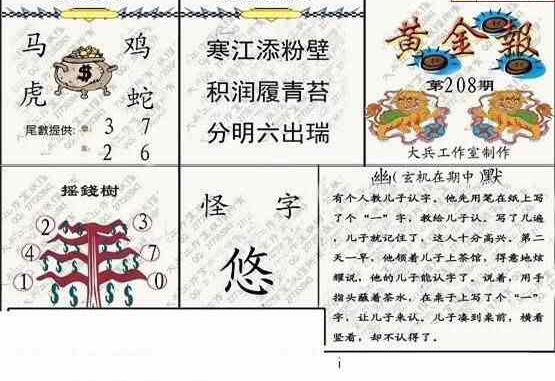 马 鸡
虎 蛇
尾數提供: 單: 3 7
2 6
寒江添粉壁
积润履青苔
分明六出瑞
黄金報
第208期
大兵工作室制作
摇錢樹
2 3
4 7
1 0
怪 字
悠
幽(玄机在期中)默
有个人教儿子认字。他先用笔在纸上写
了个“一”字，教给儿子认。写了几遍
，儿子就记住了，这人十分高兴。第二
天一早，他领着儿子上茶馆，得意地炫
耀说，他的儿子能认字了。说着，用手
指头蘸着茶水，在桌子上写了个“一”
字，让儿子来认。儿子凑到桌前，横看
竖看，却不认得了。
i